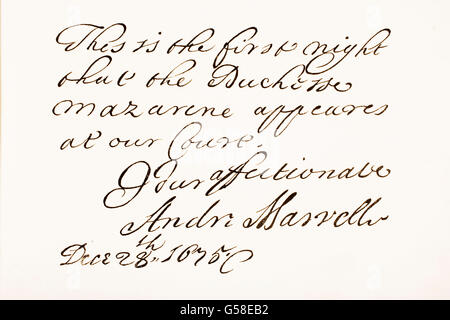 This is the first night
that the Duchesse
mazarine appeares
at our Court.
Your affectionate
Andr: Marvell
Dece 28th. 1675
alamy
G58EB2